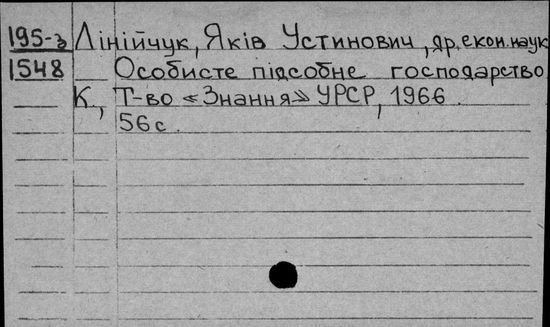 195-з Лінійчук, Яків Устинович, др. екон. наук
1548 Особисте підсобне господарство
К., Т-во «Знання» УРСР, 1966.
56 с.